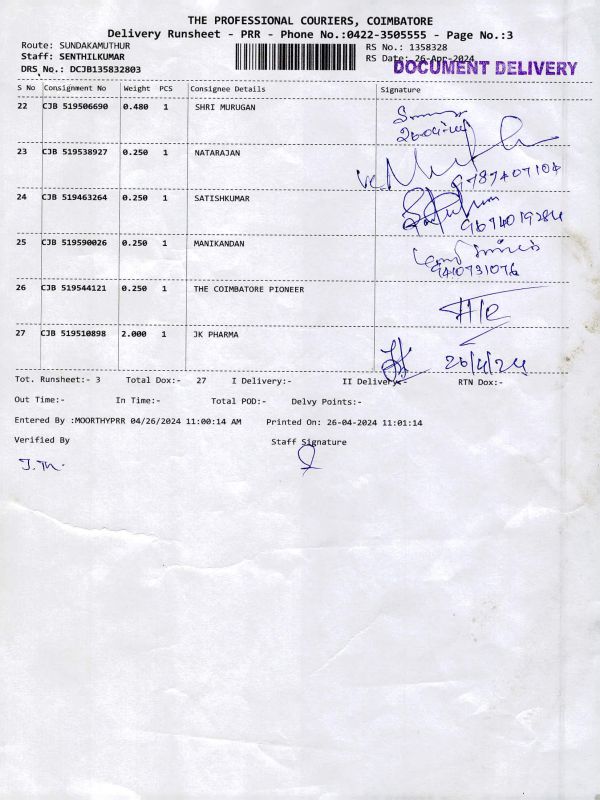 THE PROFESSIONAL COURIERS, COIMBATORE
Delivery Runsheet - PRR - Phone No.:0422-3505555 - Page No.:3
Route: SUNDAKAMUTHUR
RS No.: 1358328
Staff: SENTHILKUMAR
RS Date: 26-Apr-2024
DRS No.: DCJB135832803
DOCUMENT DELIVERY
S No Consignment No Weight PCS Consignee Details Signature
22 CJB 519506690 0.480 1 SHRI MURUGAN
23 CJB 519538927 0.250 1 NATARAJAN
9787407104
24 CJB 519463264 0.250 1 SATISHKUMAR
9674019284
25 CJB 519590026 0.250 1 MANIKANDAN
9410731076
26 CJB 519544121 0.250 1 THE COIMBATORE PIONEER
27 CJB 519510898 2.000 1 JK PHARMA
26/4/24
Tot. Runsheet:- 3 Total Dox:- 27 I Delivery:- II Delivery:- RTN Dox:-
Out Time:- In Time:- Total POD:- Delvy Points:-
Entered By :MOORTHYPRR 04/26/2024 11:00:14 AM Printed On: 26-04-2024 11:01:14
Verified By Staff Signature